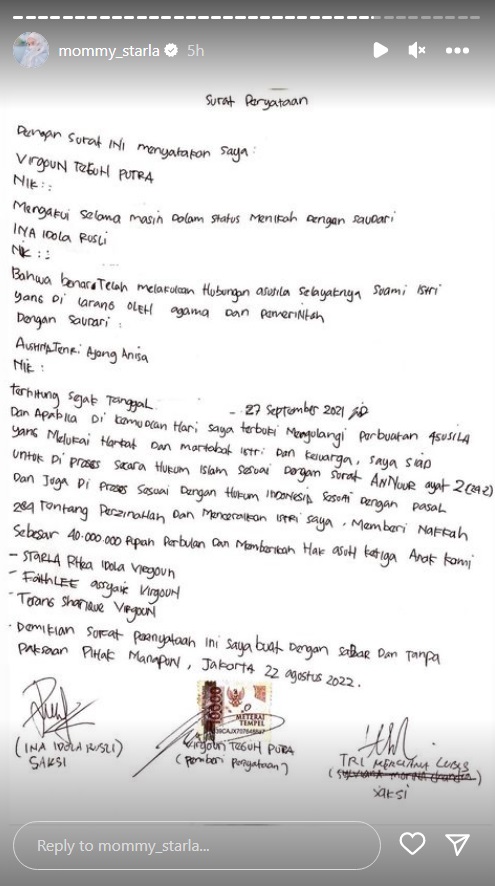 mommy_starla 5h
Surat Peryataan
Dengan surat INI menyatakan saya:
VIRGOUN TEGUH PUTRA
NIK::
Mengakui selama masih Dalam status Menikah Dengan saudari
INA IDOLA RUSLI
NIK::
Bahwa benar Telah melakukan Hubungan asusila selayaknya Suami istri
yang Di larang OLEH agama Dan Pemerintah
Dengan saudari:
Tenri Ajeng Anisa
NIK:
terhitung sejak tanggal - 27 September 2021
Dan Apabila Di Kemudian Hari saya terbukti Mengulangi Perbuatan asusila
yang Melukai Harkat Dan martabat istri Dan keluarga, saya siap
untuk Di proses secara Hukum Islam sesuai Dengan surat ANNUUR ayat 2 (24:2)
Dan Juga Di Proses sesuai Dengan Hukum INDONESIA sesuai Dengan pasal
284 Tentang Perzinahan Dan Menceraikan istri saya, Memberi NAFKah
Sebesar 40.000.000 Rupiah Perbulan Dan Memberikan Hak asuh ketiga Anak kami
- STARLA RHEA IDOLA VIRGOUN
- FAITHLEE assyair VIRGOUN
- Terang Sharique VIRGOUN
. Demikian surat pernyataan ini saya buat Dengan saDar Dan tanpa
paksaan PIHAK ManaPUN, Jakarta 22 agustus 2022.
10000
METERAI
TEMPEL
(INA IDOLA RUSLI)
SAKSI
VIRGOUN TEGUH PUTRA
(Pemberi Pernyataan)
TRI
SAKSI
Reply to mommy_starla...